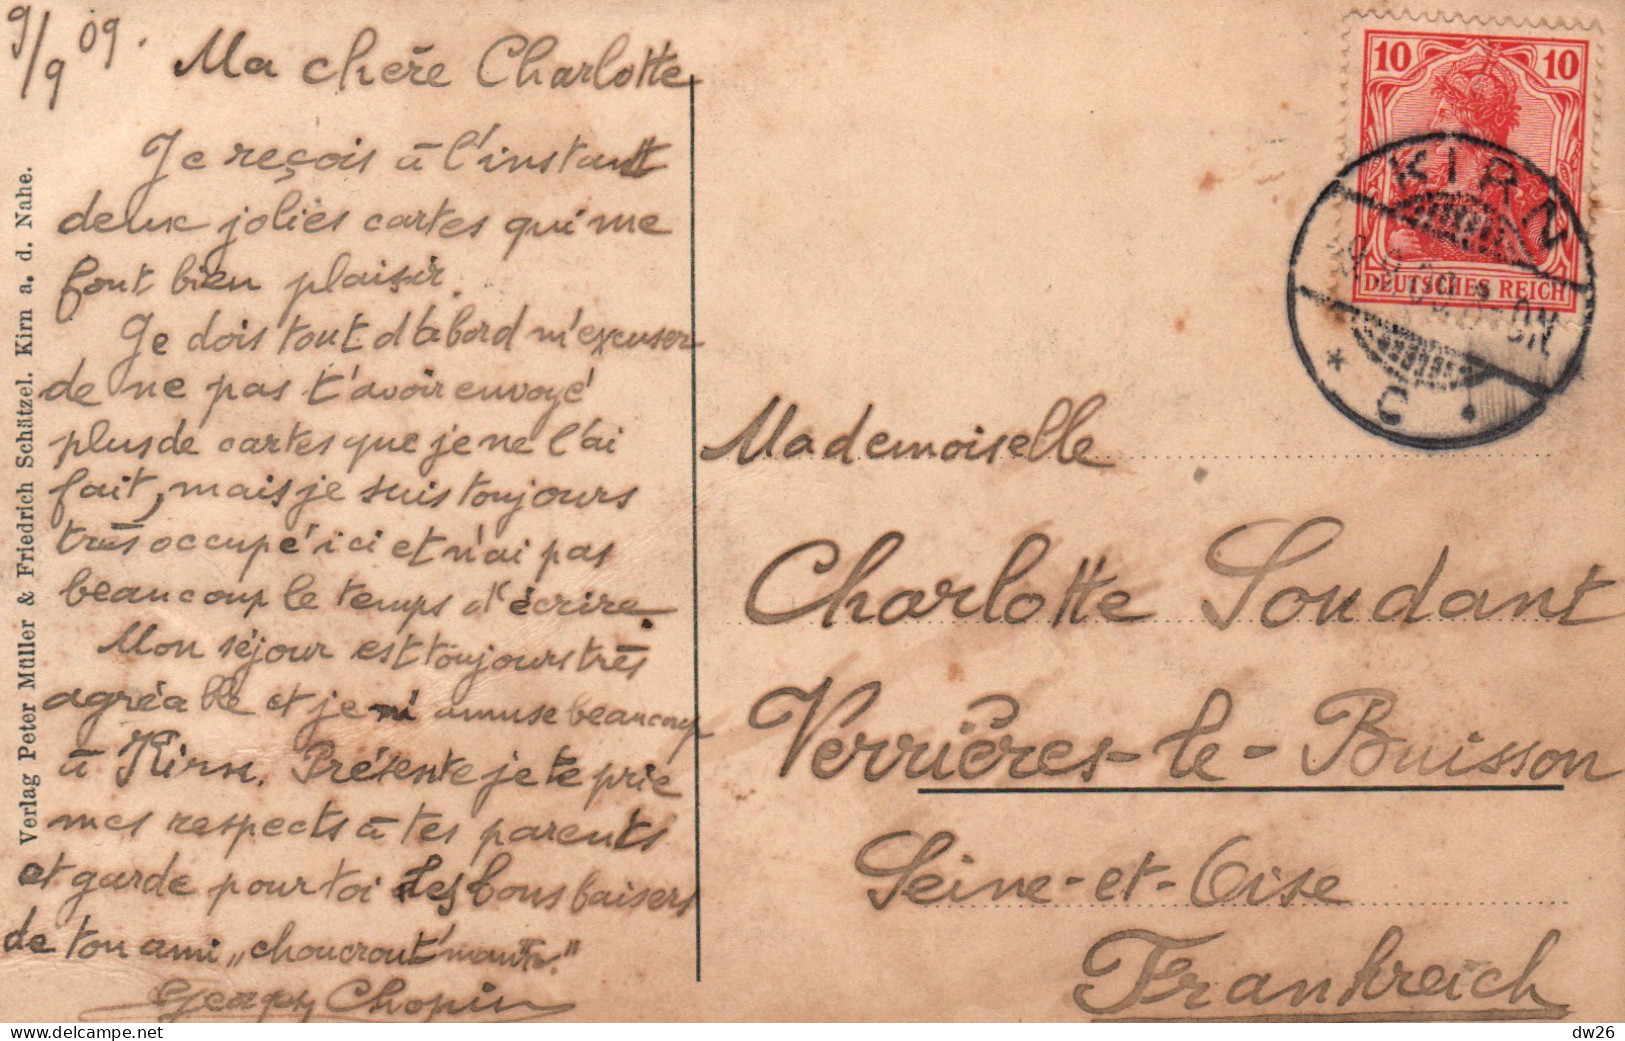 9/9 09.
Ma chère Charlotte
Je reçois à l'instant
deux jolies cartes qui me
font bien plaisir.
Je dois tout d'abord m'excuser
de ne pas t'avoir envoyé
plus de cartes que je ne l'ai
fait, mais je suis toujours
très occupé ici et n'ai pas
beaucoup le temps d'écrire.
Mon séjour est toujours très
agréable et je m'amuse beaucoup
à Kirn. Présente je te prie
mes respects à tes parents
et garde pour toi les bons baisers
de ton ami „chouerout'
Chopin
Verlag Peter Müller & Friedrich Schätzel. Kirn a. d. Nahe.
10 10
DEUTSCHES REICH
KIRN
* C *
Mademoiselle
Charlotte Soudant
Verrières-le-Buisson
Seine-et-Oise
Frankreich
dw26